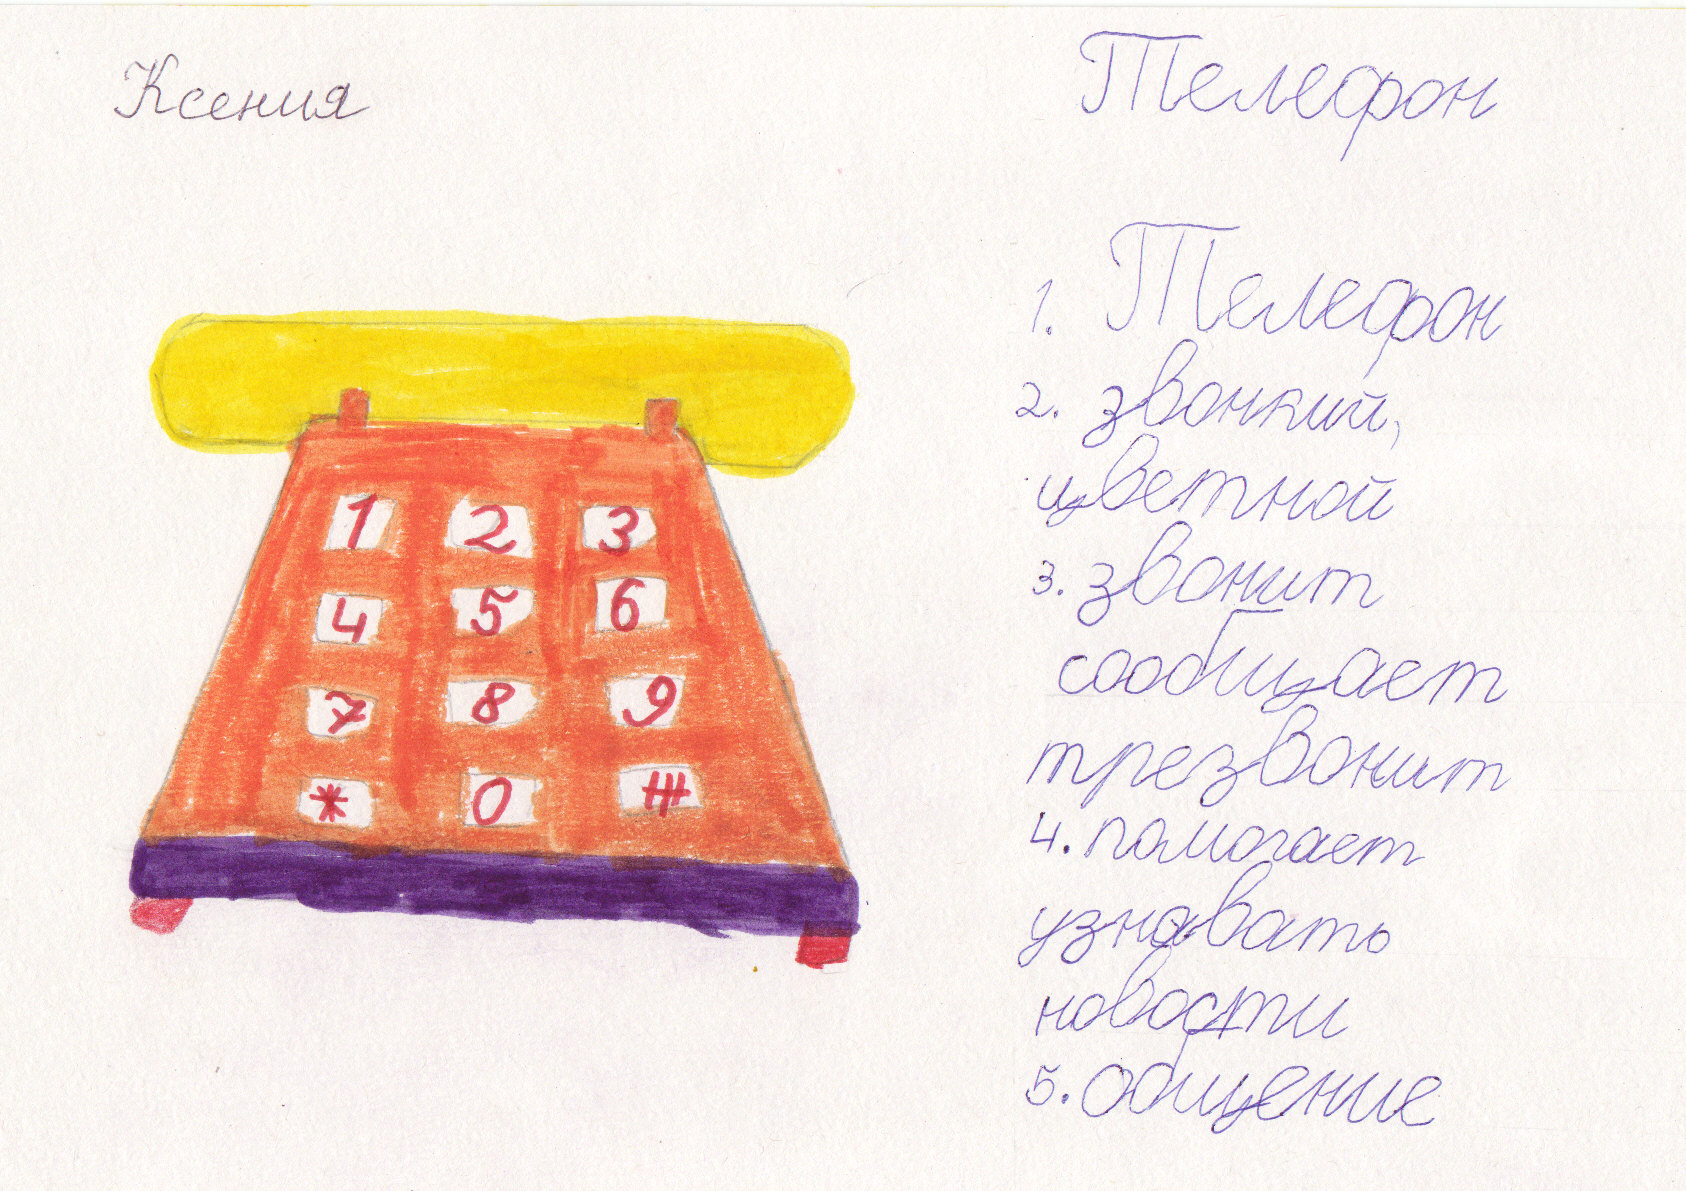 Ксения
Телефон
1. Телефон
2. звонкий,
цветной
3. звонит
сообщает
трезвонит
4. помогает
узнавать
новости
5. общение
1 2 3
4 5 6
7 8 9
* 0 #